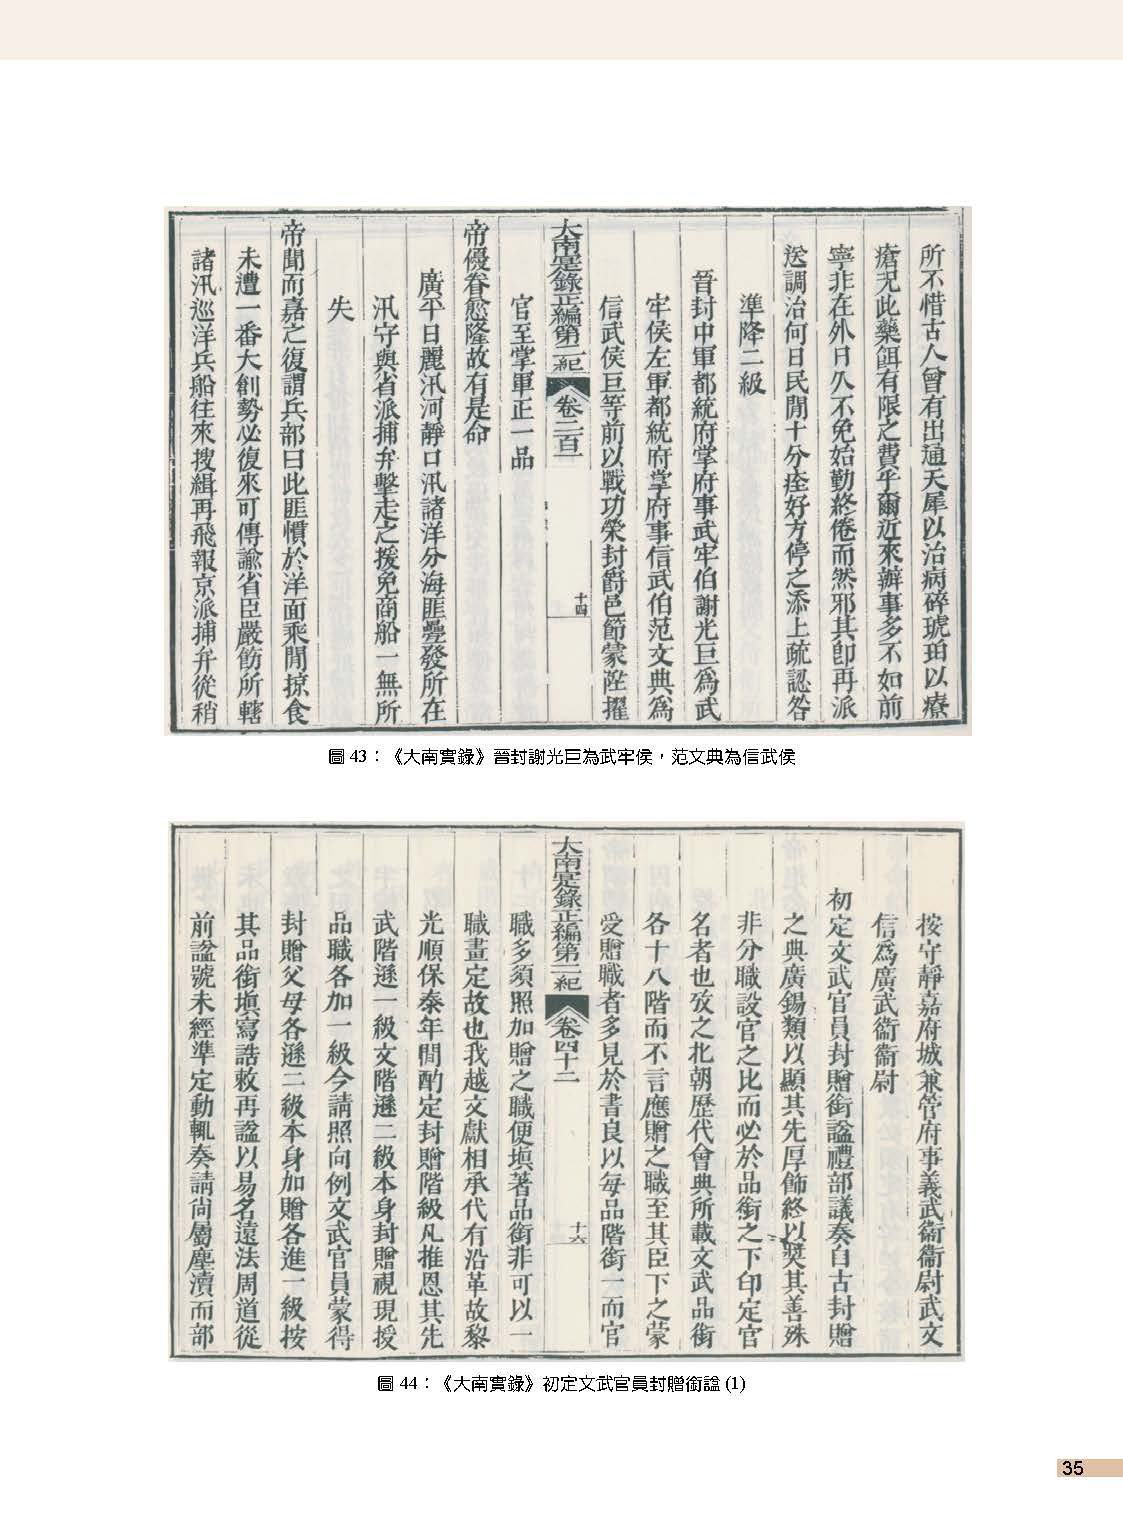 所不惜古人曾有出通天犀以治病碎琥珀以療
瘡况此藥餌有限之費乎爾近來辦事多不如前
寧非在外日久不免始勤終倦而然邪其卽再派
送調治何日民閒十分痊好方停之添上疏認咎
準降二級
晉封中軍都統府掌府事武牢伯謝光巨爲武
牢侯左軍都統府掌府事信武伯范文典爲
信武侯巨等前以戰功榮封爵邑節蒙陞擢
大南寔錄正編第二紀 卷二百一 十四
官至掌軍正一品
帝優眷愈隆故有是命
廣平日麗汛河靜口汛諸洋分海匪疊發所在
汛守與省派捕弁擊走之援免商船一無所
失
帝聞而嘉之復謂兵部曰此匪慣於洋面乘閒掠食
未遭一番大創勢必復來可傳諭省臣嚴飭所轄
諸汛巡洋兵船往來搜緝再飛報京派捕弁從稍
圖 43：《大南實錄》晉封謝光巨為武牢侯，范文典為信武侯
按守靜嘉府城兼管府事義武衞衞尉武文
信爲廣武衞衞尉
初定文武官員封贈銜諡禮部議奏自古封贈
之典廣錫類以顯其先厚飾終以奬其善殊
非分職設官之比而必於品銜之下印定官
名者也攷之北朝歷代會典所載文武品銜
各十八階而不言應贈之職至其臣下之蒙
受贈職者多見於書良以每品階銜一而官
大南寔錄正編第二紀 卷四十二 十六
職多須照加贈之職便塡著品銜非可以一
職畫定故也我越文獻相承代有沿革故黎
光順保泰年間酌定封贈階級凡推恩其先
武階遜一級文階遜二級本身封贈視現授
品職各加一級今請照向例文武官員蒙得
封贈父母各遜二級本身加贈各進一級按
其品銜塡寫誥敕再諡以易名遠法周道從
前諡號未經準定動輒奏請尚屬塵瀆而部
圖 44：《大南實錄》初定文武官員封贈銜諡 (1)
35